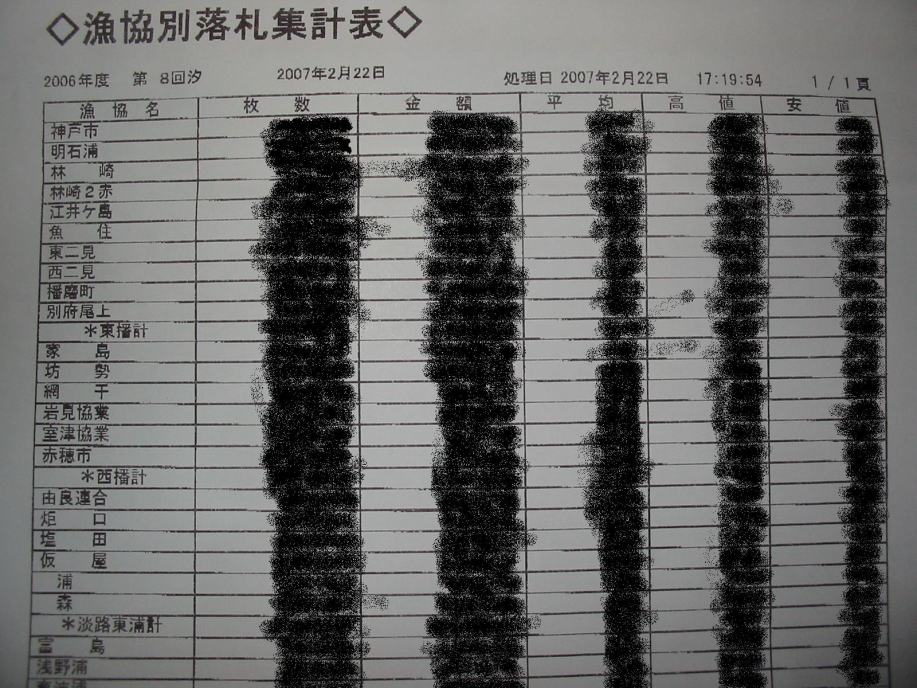 ◇漁協別落札集計表◇
2006年度 第 8回汐 2007年2月22日 処理日 2007年2月22日 17:19:54 1 / 1 頁
漁 協 名 枚 数 金 額 平 均 高 値 安 値
神戸市
明石浦
林 崎
林崎2赤
江井ケ島
魚 住
東二見
西二見
播磨町
別府尾上
*東播計
家 島
坊 勢
網 干
岩見協業
室津協業
赤穂市
*西播計
由良連合
炬 口
塩 田
仮 屋
浦
森
*淡路東浦計
富 島
浅野浦